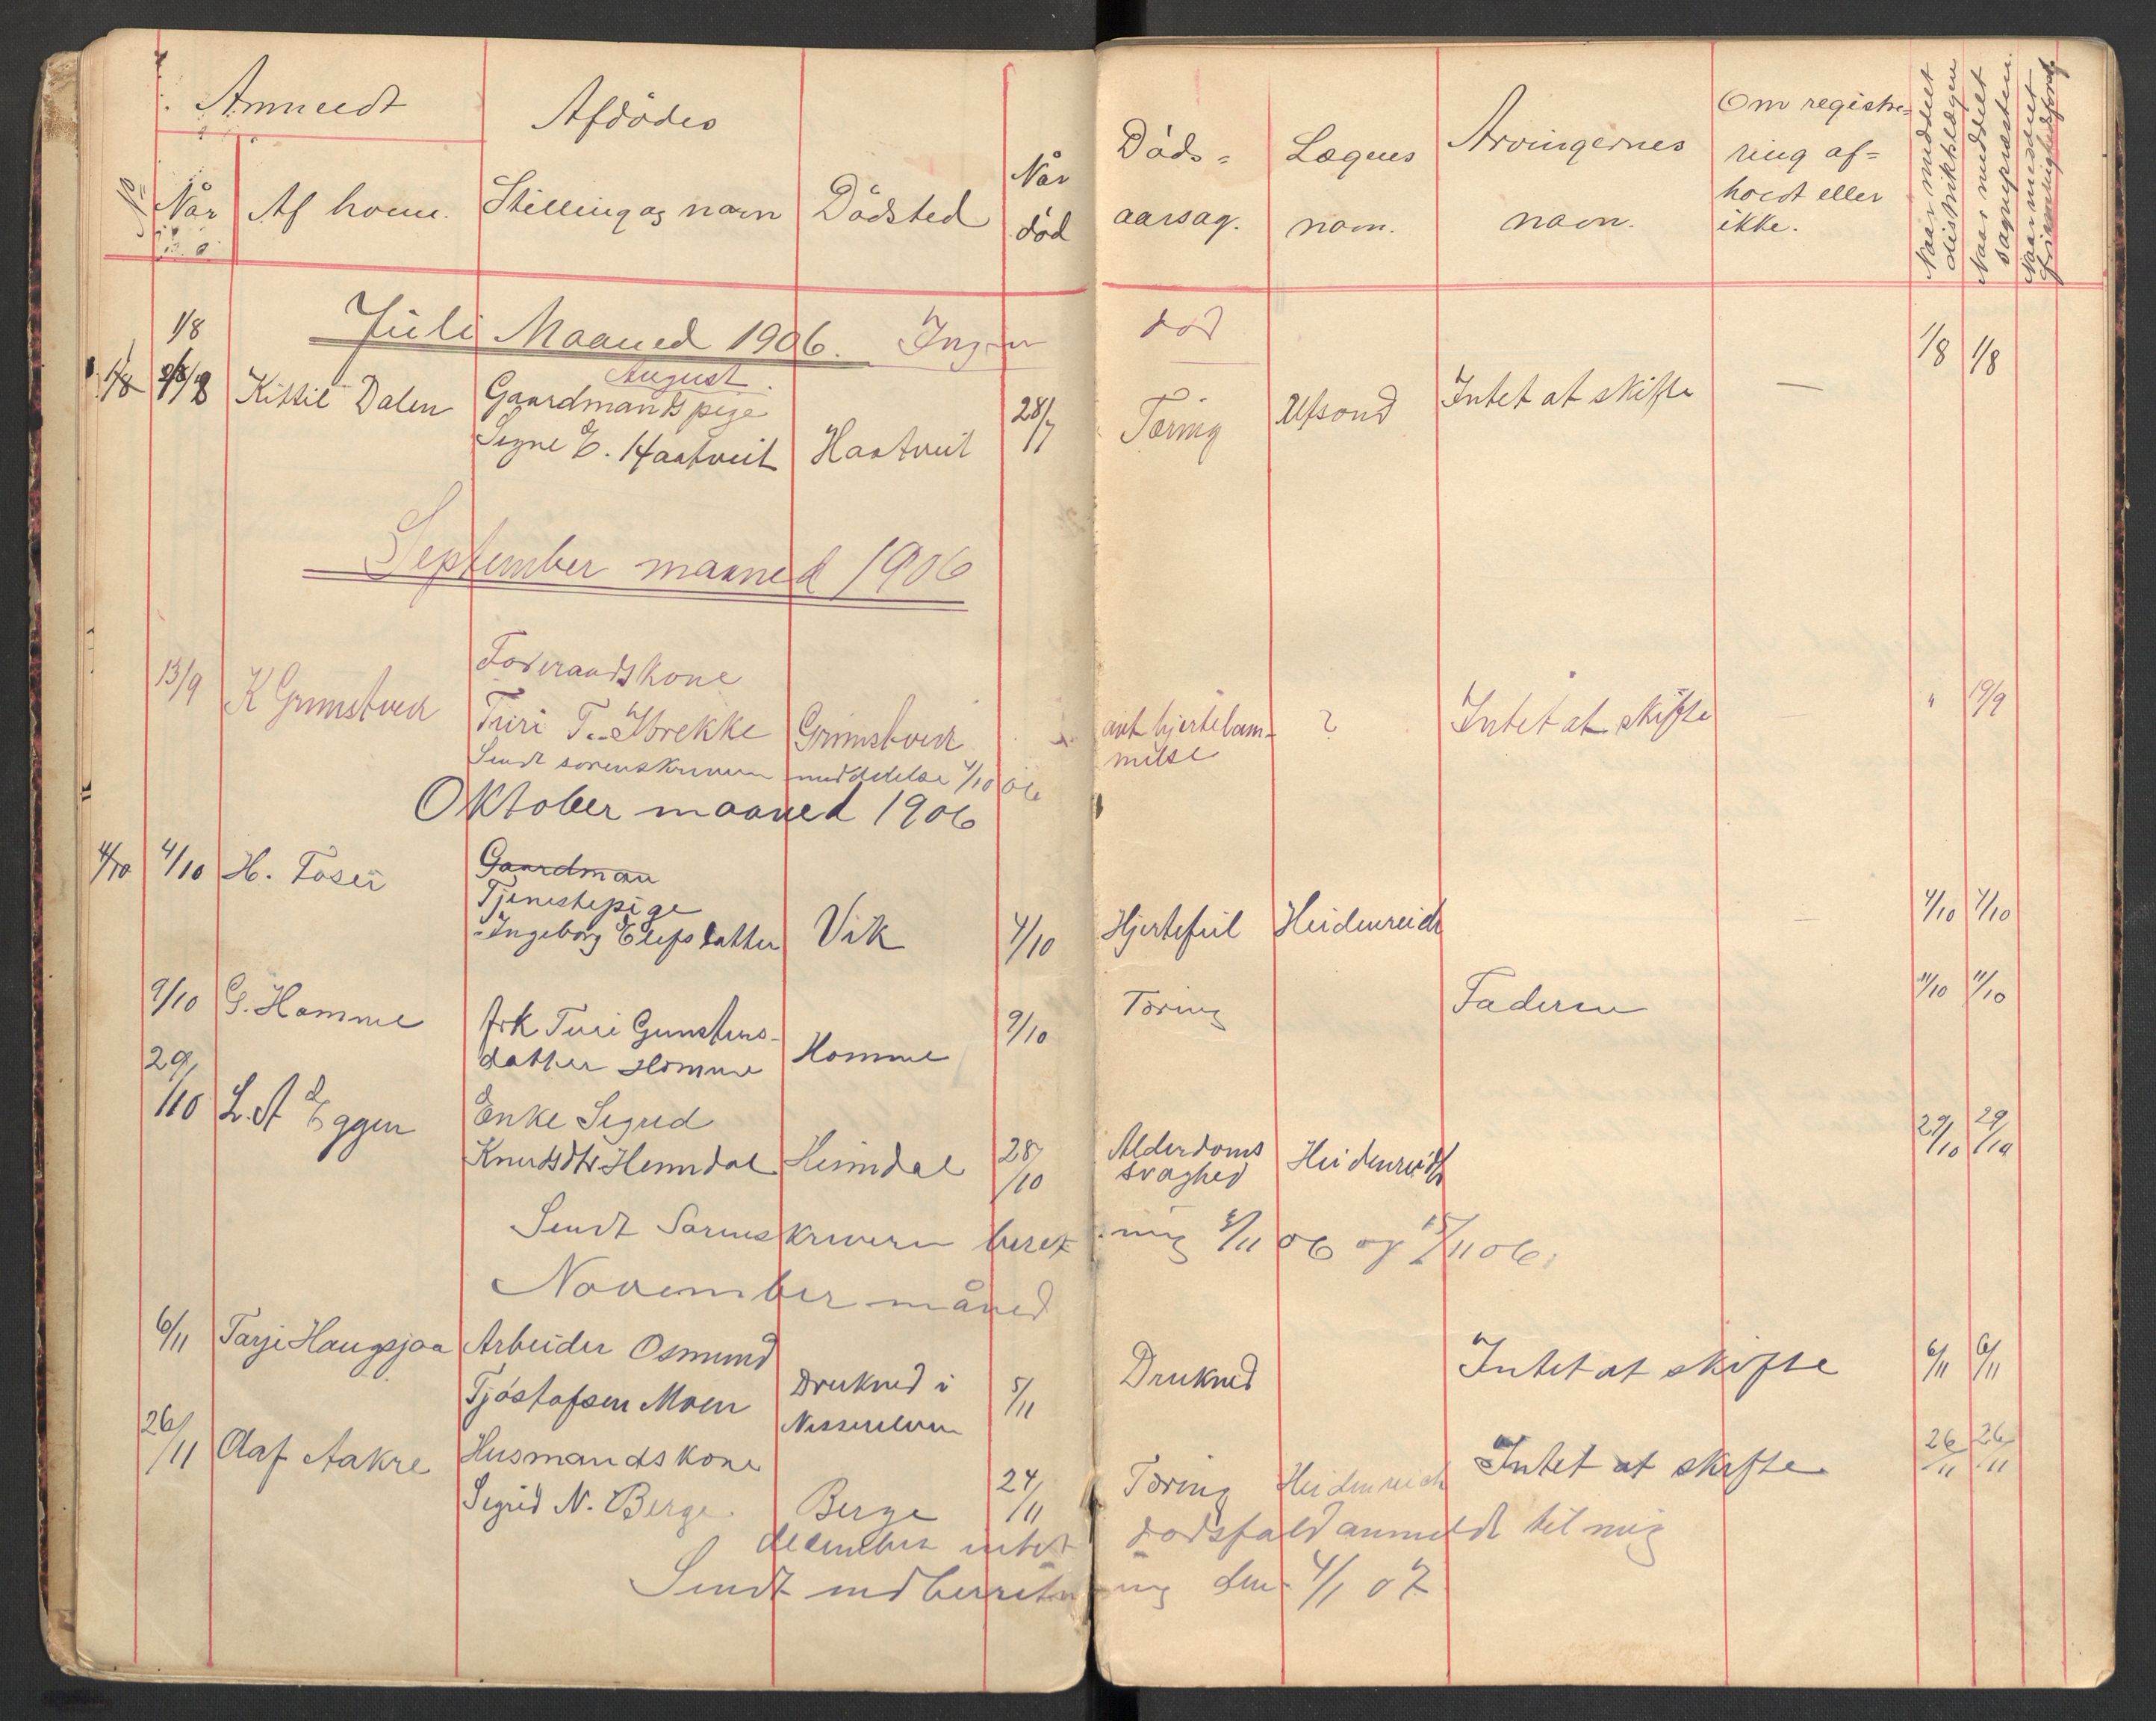 Anmeldt
Afdødes
No
Når
Af hvem.
Stilling og navn
Dödsted
Når
död
Döds=
aarsag.
Lægens
navn.
Arvingernes
navn.
Om registre=
ring af=
holdt eller
ikke.
Naar meddelt
distriktslægen
Naar meddelt
sognepræsten.
Naar meddelt
1/8 Juli Maaned 1906. Ingen död 1/8 1/8
August.
1/8 Kittil Dalen Gaardmandspige 28/7 Tæring Ufsond Intet at skifte —
Signe E. Haatveit Haatveit
September maaned 1906
13/9 K Grimstveit Foderaadskone
Turi T. Brekke Grimstveit ant hjertelam- ? Intet at skifte " 19/9
melse
Sendt sorenskriveren meddelelse 4/10 06
Oktober maaned 1906
4/10 4/10 H. Fosei Gaardman
Tjenestepige
Ingeborg Elefsdatter Vik 4/10 Hjertefeil Heidenreich 4/10 4/10
9/10 G. Homme frk Turi Gunstens-
datter Homme Homme 9/10 Tæring Faderen 11/10 11/10
29/10 L. A Eggen Enke Sigrid
Knudsdtr Heimdal Heimdal 28/10 Alderdoms
svaghed Heidenreich 29/10 29/10
Sendt Sorenskriveren beretning 3/11 06 og 15/11 06.
November måned
6/11 Tarje Haugsjaa Arbeider Osmund
Tjöstofsen Moen Drukned i
Nisserelven 5/11 Drukned Intet at skifte 6/11 6/11
26/11 Olaf Aakre Husmandskone
Sigrid N. Berge Berge 24/11 Tæring Heidenreich Intet at skifte 26/11 26/11
december intet dødsfald anmeldt til mig
Sendt indberetning den 4/1 07